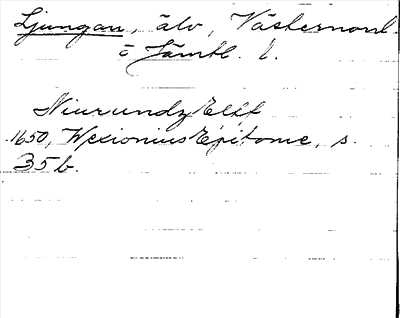 Ljungan, älv, Västernorrl.
o Jämtl. l.
Niurundz Elff
1650, Wexionius Epitome, s.
35b.